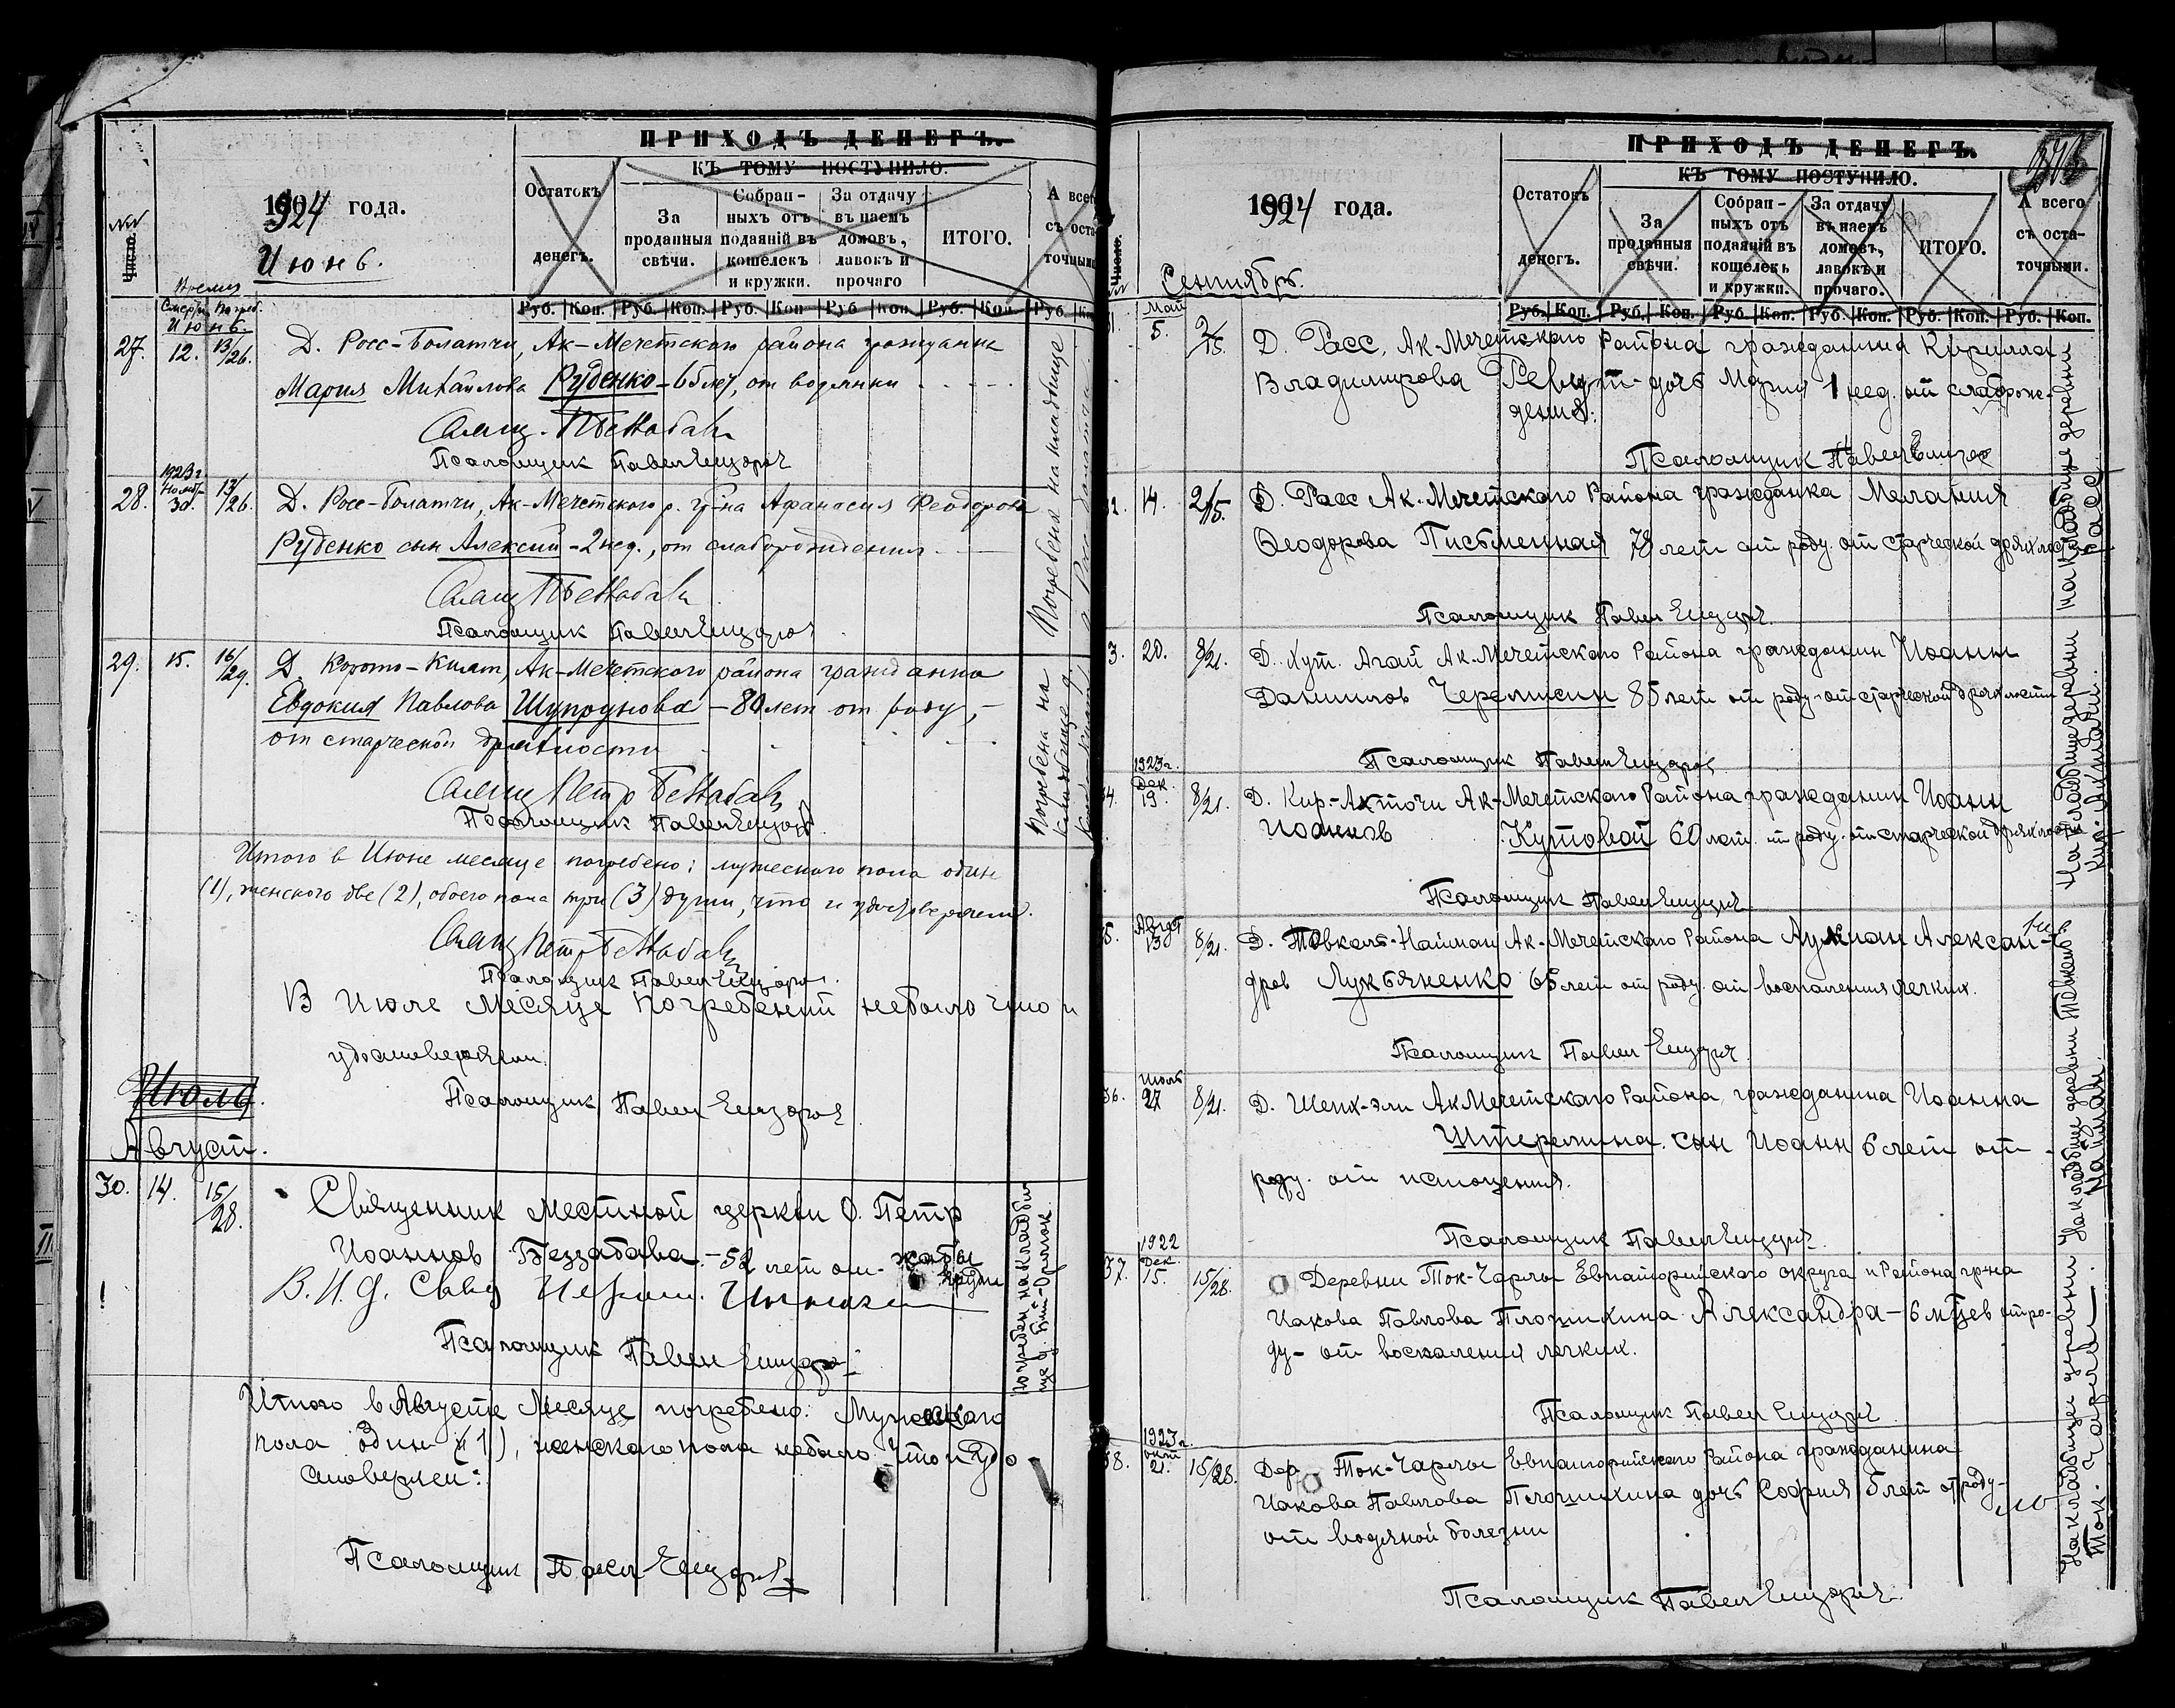 ПРИХОДЪ ДЕНЕГЪ.
КЪ ТОМУ ПОСТУПИЛО.
Остатокъ денегъ.
За проданныя свѣчи.
Собран-ныхъ отъ подаяній въ кошелекъ и кружки.
За отдачу въ наемъ домовъ, лавокъ и прочаго
ИТОГО.
А всего съ оста-точными
№№
Число.
1924 года.
Июнь.
Время
Смерти Погреб.
Руб. Коп. Руб. Коп. Руб. Коп Руб Коп Руб. Коп. Руб.
Июнь.
27. 12. 13/26. Д. Росс-Болатчи, Ак-Мечетского района гражданка
Мария Михайлова Руденко - лет, от водянки
Свящ. П Беззабава
Псаломщик Павел
28. 1923 г. Нояб. 30. 13/26. Д. Росс-Болатчи, Ак-Мечетского р. гр-на Афанасия Феодорова
Руденко сын Алексий - 2 нед., от слаборождения
Свящ П Беззабава
Псаломщик Павел
Погребены на кладбище
д. Росс-Болатчи
29. 15. 16/29. Д. Корото-Кият, Ак-Мечетского района гражданка
Евдокия Павлова - 80 лет от роду,-
от старческой дряхлости
Свящ Петр Беззабава
Псаломщик Павел
Погребена на
кладбище д.
Итого в Июне месяце погребено: мужеского пола один
(1), женского две (2), обоего пола три (3) души, что и удостоверяем.
Свящ Петр Беззабава
Псаломщик Павел
В Июле Месяце Погребений небыло что и
удостоверяем.
Псаломщик Павел
Июль.
Август.
30. 14. 15/28. Священник местной церкви О. Петр
Иоаннов Беззабава - 52 лет от жабы
груди
В. И. д. Свящ Иером.
Псаломщик Павел
Погребен на Кладби
ще д.
Итого в Августе Месяце погребено: Мужескаго
пола один (1), женскаго пола небыло Что и удо
стоверяем:
Псаломщик Павел
ПРИХОДЪ ДЕНЕГЪ.
КЪ ТОМУ ПОСТУПИЛО.
Остатокъ денегъ.
За проданныя свѣчи.
Собран-ныхъ отъ подаяній въ кошелекъ и кружки.
За отдачу въ наемъ домовъ, лавокъ и прочаго.
ИТОГО.
А всего съ оста-точными.
№
Число.
1924 года.
Сентябрь.
Руб. Коп. Руб. Коп. Руб. Коп. Руб. Коп. Руб. Коп. Руб. Коп.
31. Май 5. 2/15. Д. Расс, Ак-Мечетскаго Района гражданина Кирилла
Владимирова Ревут - дочь Мария 1 нед. от слаборож-
дения.
Псаломщик Павел
32. 14. 2/15. Д. Расс Ак-Мечетскаго Района гражданка Мелания
Феодорова Письменная 78 лет от роду. от старческой дряхлости
Псаломщик Павел
На кладбище деревни
Расс
33. 20. 8/21. Д. Хут. Агай Ак.Мечетскаго Района гражданин Иоанн
Данилов Черемисин 85 лет от роду. от старческой дряхлости
Псаломщик Павел
34. 1923 г. Дек 19. 8/21. Д. Кир.-Актачи Ак-Мечетскаго Района гражданин Иоанн
Иоаннов Кутовой 60 лет. от роду. от старческой дряхлости
Псаломщик Павел
На кладбище деревни
Кир-Актачи.
35. Август 13 8/21. Д. Товкель-Найман Ак-Мечетскаго Района Алексан-
дров Лукьяненко 65 лет от роду. от воспаления легких.
Псаломщик Павел
На кладбище деревни Товкель
Найман.
36. Июль 27 8/21. Д. Шеих-эли Ак Мечетскаго Района, гражданина Иоанна
Штеремина. сын Иоанн 6 лет от
роду. от истощения.
Псаломщик Павел
37. 1922 Дек. 15. 15/28. Деревни Ток-Чарлы Евпаторийского округа и Района гр-на
Иакова Павлова Плошихина Александра - 6 м-цев от ро-
ду - от воспаления легких.
Псаломщик Павел
38. 1923 г. окт 21. 15/28. Дер Ток-Чарлы Евпаторийскаго Района гражданина
Иакова Павлова Плошихина дочь София 5 лет от роду -
от водяной болезни
Псаломщик Павел
На кладбище деревни
Ток-Чарлы.